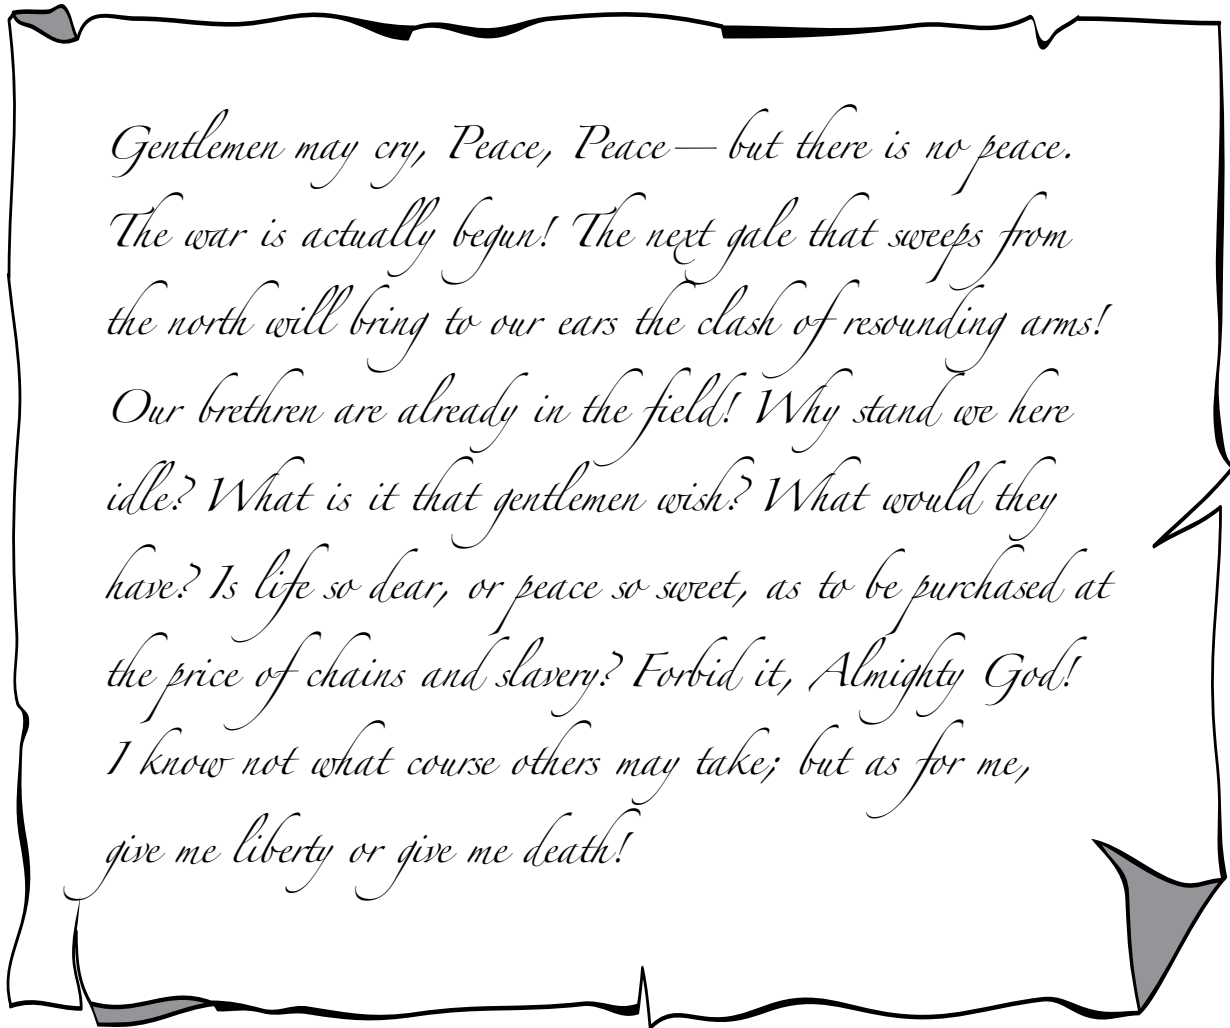 Gentlemen may cry, Peace, Peace — but there is no peace.
The war is actually begun! The next gale that sweeps from
the north will bring to our ears the clash of resounding arms!
Our brethren are already in the field! Why stand we here
idle? What is it that gentlemen wish? What would they
have? Is life so dear, or peace so sweet, as to be purchased at
the price of chains and slavery? Forbid it, Almighty God!
I know not what course others may take; but as for me,
give me liberty or give me death!